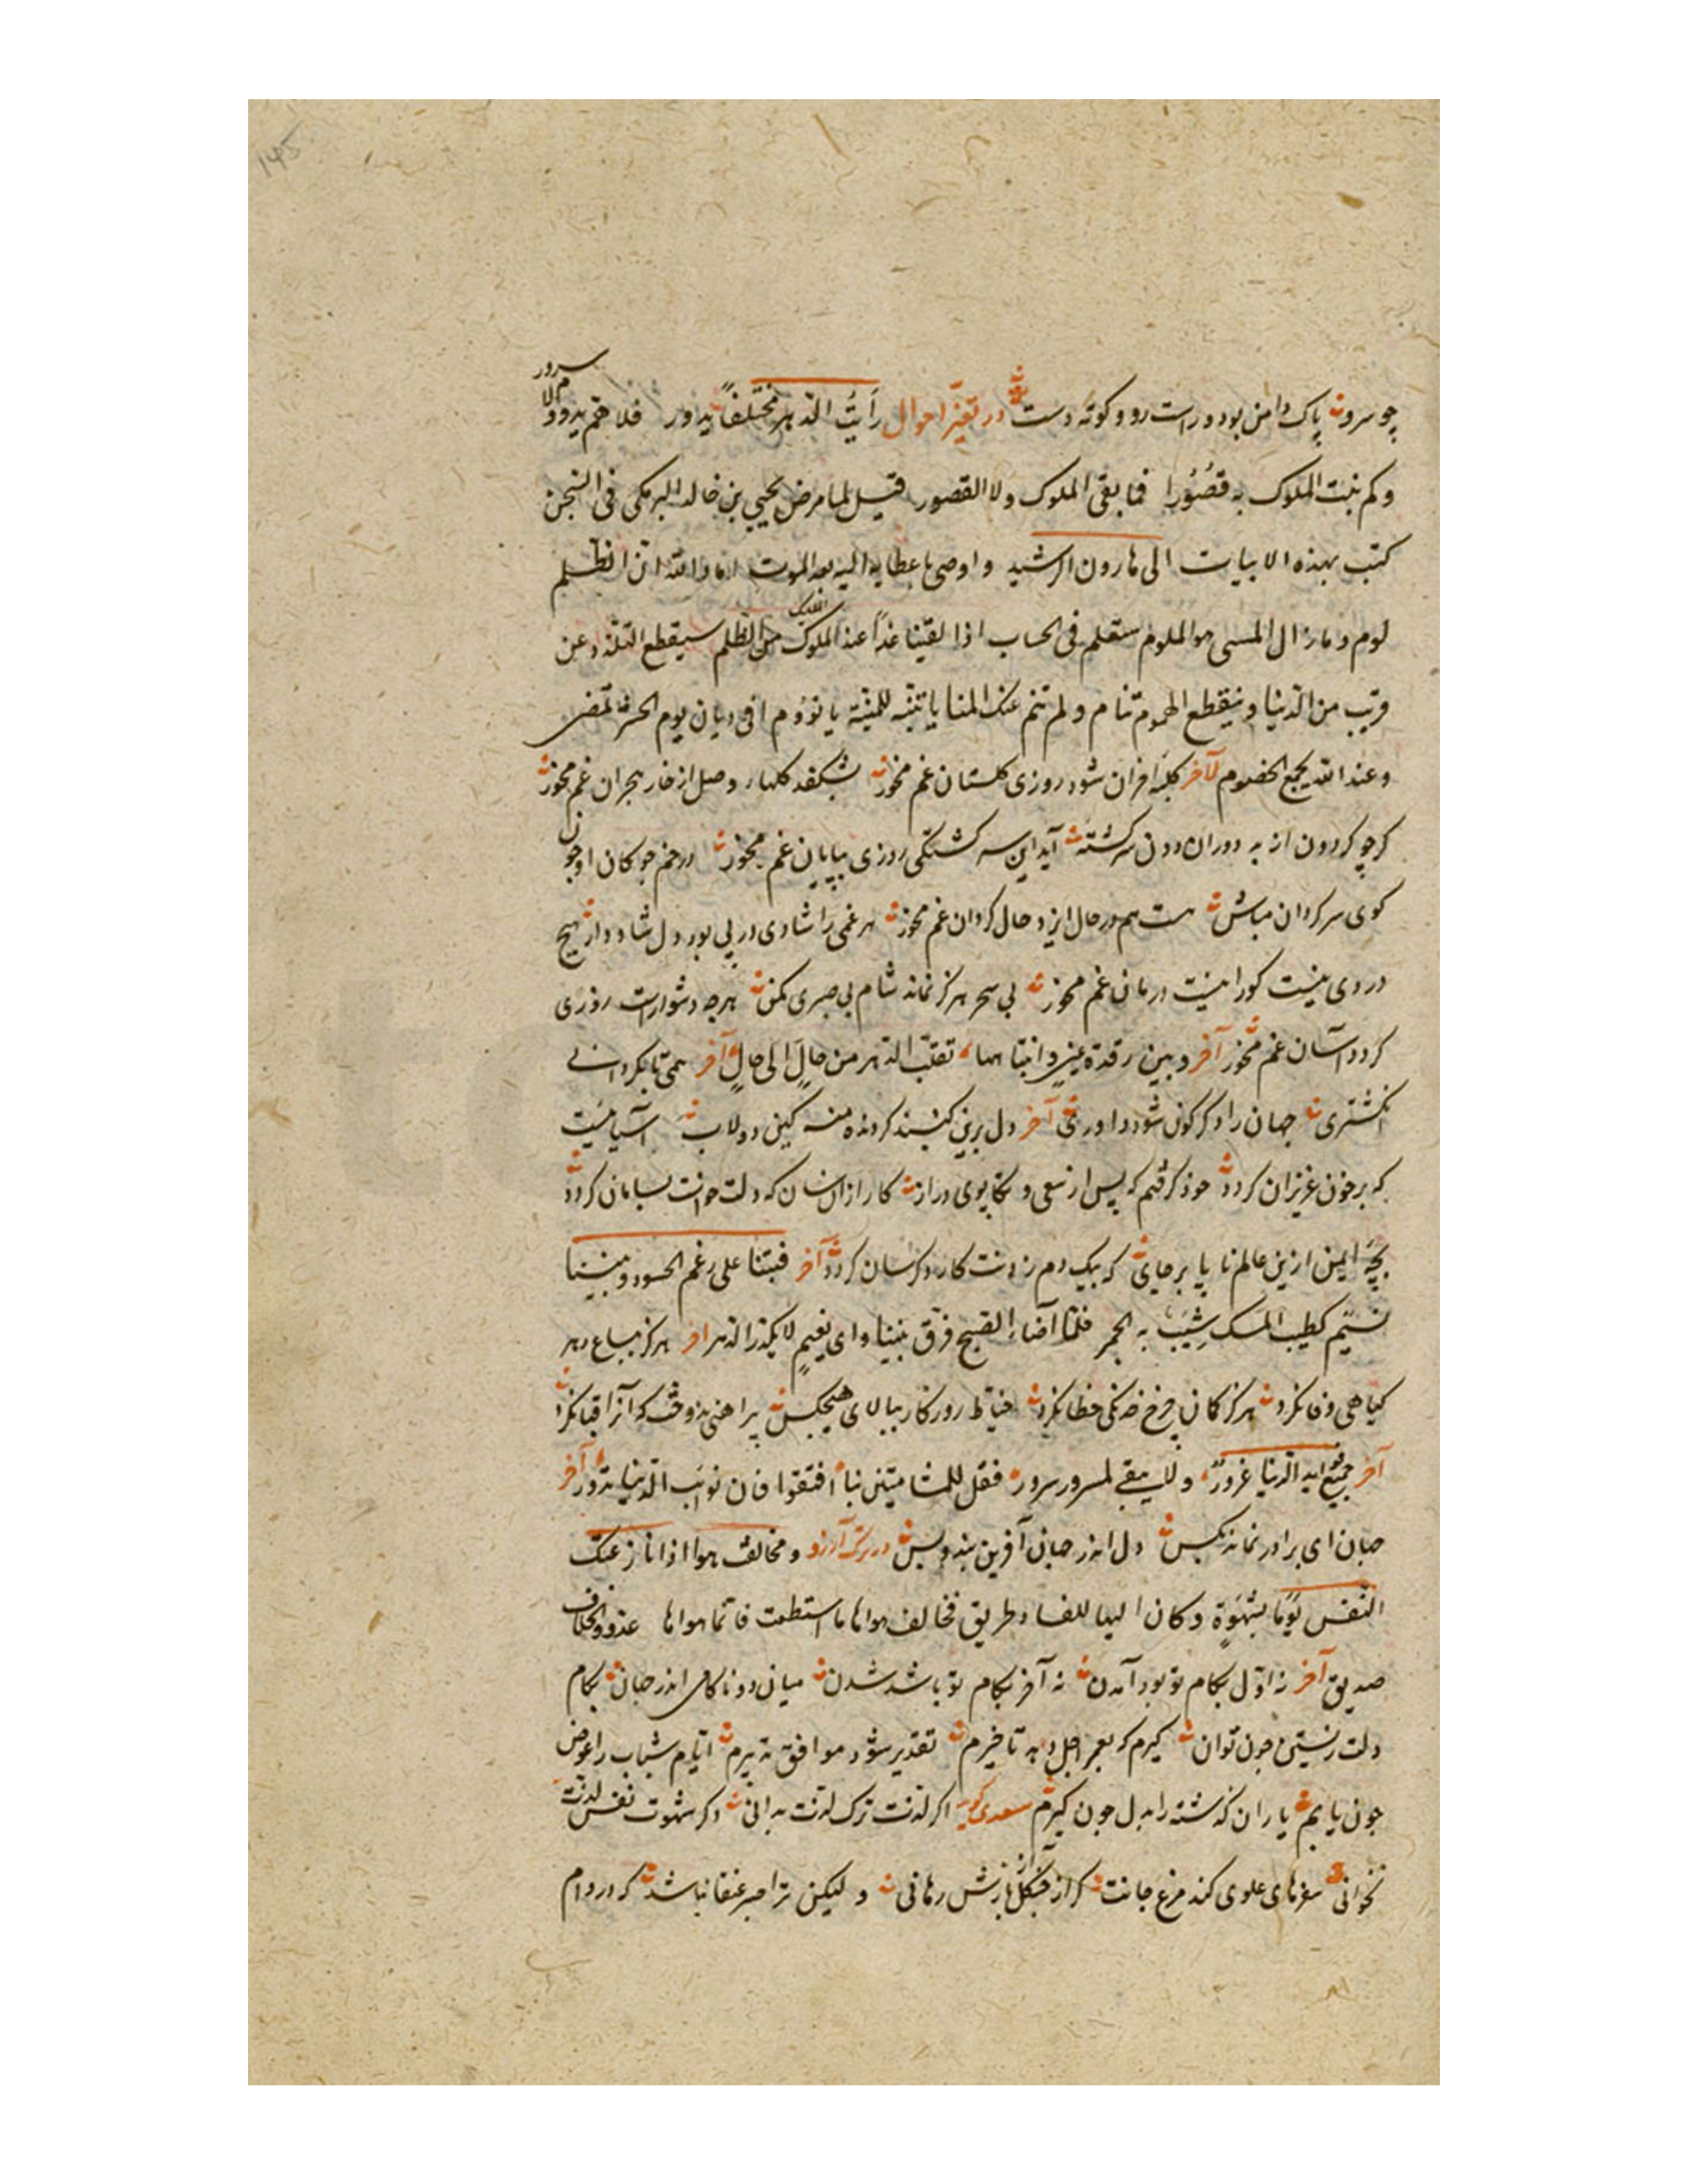 ۱۴۵
چو سرو پاک دامن بود و راست رو و کوته دست در تغیّر احوال رَاَیتُ الدّهر مختلفاً یدور فلا حزم یدوم ولا سرور
وکم بنت الملوک به قصُوُرا فما بقی الملوک ولا القصور قیل لما مرض یحیی بن خالد البرمکی فی السّجن
کتب بهذه الابیات الی هارون الرشید و اوصی باعطایه الیه بعد الموت اما والله انّ الظّلم
لوم و ما زال المسی هو الملوم ستعلم فی الحساب اذا لقینا غداً عند الملیک الملوک من الظّلم سیقطع التلذذ عن
قریب من الدّنیا و ینقطع الهموم تنام و لم تنم عنک المنایا تنبّه للمنیّه یا نؤوم الی دیان یوم الحشر تمضی
و عند الله یجمع الخصوم لآخر کلبه احزان شود روزی کلستان غم مخور بشکفد کلهاء وصل از خار هجران غم مخور
کرچو کردون از به دوران دون سرکشته آید این سرکشتکی روزی بپایان غم مخور در خم چوکان او چون
کوی سرکردان مباش هست هم در حال ایزد حال کردان غم مخور هر غمی را شادی در پی بود دل شاد دار هیچ
دردی نیست کورا نیست درمان غم مخور بی سحر هرکز نماند شام بی صبری مکن هرچه دشوارست روزی
کردد آسان غم مخور آخر و بین رقدة عینٍ و انتباهها تقلّب الدّهر من حالٍ الی حالٍ آخر همی تا بکردانی
انکشتری جهان را دکرکون شود داوری آخر دل برین کنبد کردنده منه کین دولاب آسیاییست
که بر خون عزیزان کردد خود کرفتم که پس از سعی و تکاپوی دراز کار از انسان که دلت خواست بسامان کردد
بچه ایمن ازین عالم ناپا برجای که بیک دم زدنت کار دکر سان کردد آخر فبتنا علی رغم الحسود و بیننا
نسیم کطیب المسک شِیبَ به الخمر فلمّا اضاء الصّبح فرّق بیننا و ای نعیمٍ لا یکدّر الدّهر آخر هرکز بباغ دهر
کیاهی وفا نکرد هرکز کمان چرخ خدنکی خطا نکرد خیاط روزکار ببالای هیچکس پیراهنی ندوخت که آنرا قبا نکرد
آخر جمیع الدّنیا غرورٌ و لا یبقی لمسرور سرور فقل للشامتین بنا افیقوا فان نوایب الدّنیا تدور آخر
جهان ای برادر نماند بکس دل اندر جهان آفرین بند و بس در ترک آرزو و مخالفت هوا اذا نازعتک
النّفس یوماً بشهوةٍ و کان الیها للفساد طریق فخالف هواها ما استطعت فانّما هواها عدو و الخلاف
صدیق آخر نه اوّل بکام تو بود آمدن نه آخر بکام تو باشد شدن میان دو ناکامی اندر جهان بکام
دلت زیستن چون توان کیرم که بعمر اجل دهد تاخیرم تقدیر شود موافق تدبیرم ایّام شباب را عوض
چون یابم یاران کذشته را بدل چون کیرم سعدی کوید اکر لذت ترک لذت بدانی دکر شهوت نفس لذت
نخوانی سفرهای علوی کند مرغ جانت کر از چنکل آزش رهانی و لیکن ترا صبر عنقا نباشد که در دام